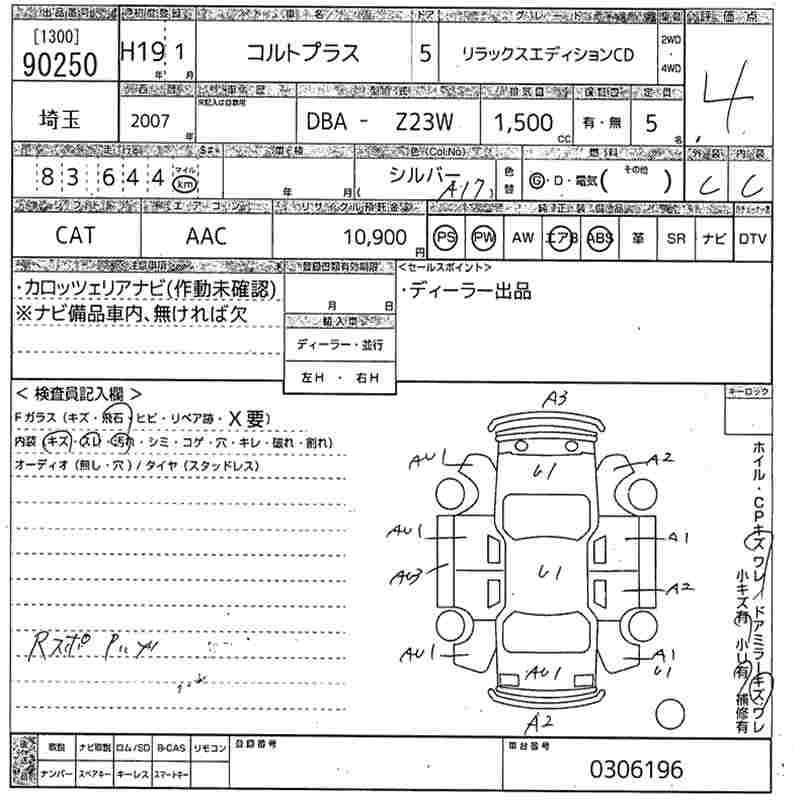 出品番号 初度登録 車名 ドア グレード 車歴 評価点
[1300]
90250
H19年 1月
コルトプラス
5
リラックスエディションCD
2WD・4WD
4
埼玉
2007年
車歴
未記入は自家用
型式 排気量 定員
DBA - Z23W
1,500cc
有・無
5名
走行 車検 色(Col.No) 燃料 外装 内装
83,644 マイル km
年 月
シルバー
(A17)
色替
G・D・電気( その他 )
C C
シフト エアコン リサイクル預託金 純正装備品
CAT
AAC
10,900円
PS PW AW エアB ABS 革 SR ナビ DTV
注意事項
・カロッツェリアナビ(作動未確認)
※ナビ備品車内、無ければ欠
登録書類有効期限
月 日
輸入車
ディーラー・並行
左H ・ 右H
<セールスポイント>
・ディーラー出品
<検査員記入欄>
Fガラス(キズ・飛石・ヒビ・リペア跡・X要)
内装(キズ・スレ・汚れ・シミ・コゲ・穴・キレ・破れ・割れ)
オーディオ(無し・穴)/タイヤ(スタッドレス)
Rスポ
A3
AU1
U1
A2
AU1
A1
AU3
U1
A2
AU1
AU1
A1
U1
A2
キーロック
ホイル・CPキズワレ/ドアミラーキズ・ワレ
小キズ有 小U有 補修有
取説 ナビ取説 ロム/SD B-CAS リモコン
ナンバー スペアキー キーレス スマートキー
登録番号
車台番号
0306196